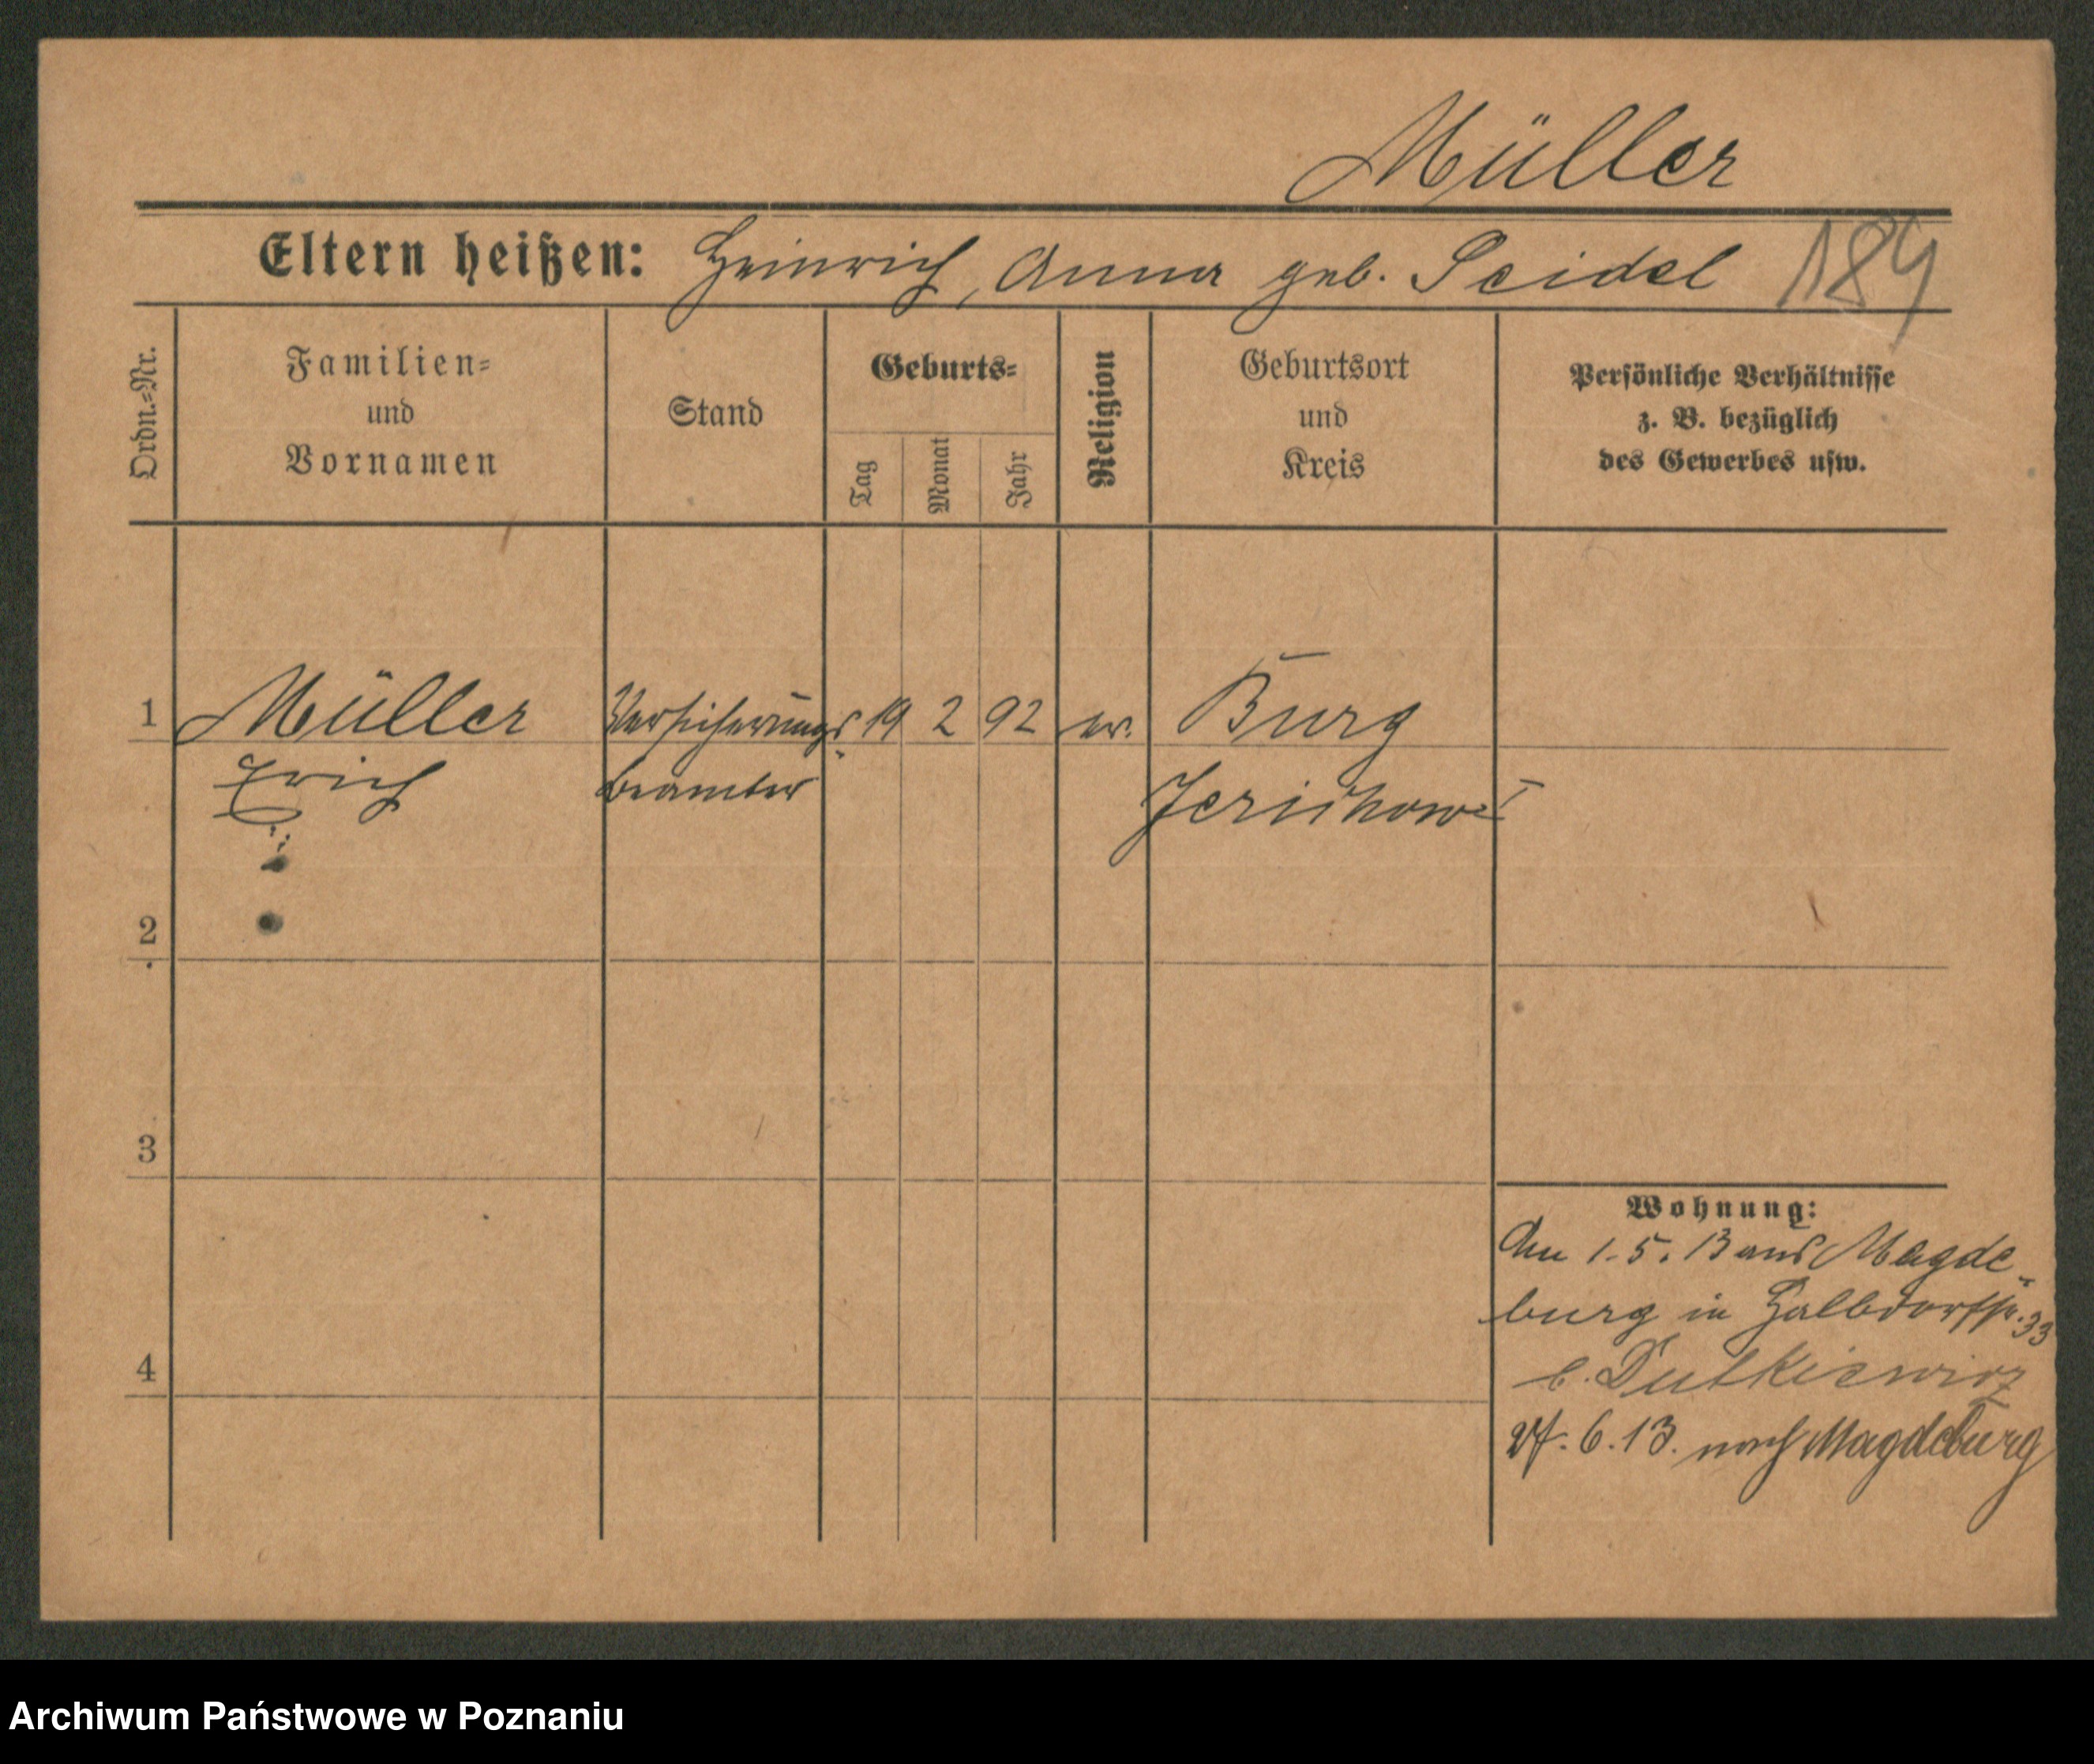 Müller
Eltern heißen: Heinrich, Anna geb. Seidel 189
Ordn.=Nr.
Familien=
und
Vornamen
Stand
Geburts=
Tag
Monat
Jahr
Religion
Geburtsort
und
Kreis
Persönliche Verhältnisse
z. B. bezüglich
des Gewerbes usw.
1 Müller Versicherungs- 19 2 92 ev. Burg
Erich beamter Jerichow I
2
3
4
Wohnung:
Am 1.5.13 aus Magde-
burg in Halbdorfstr. 33
b. Dutkiewicz
27.6.13. nach Magdeburg
Archiwum Państwowe w Poznaniu